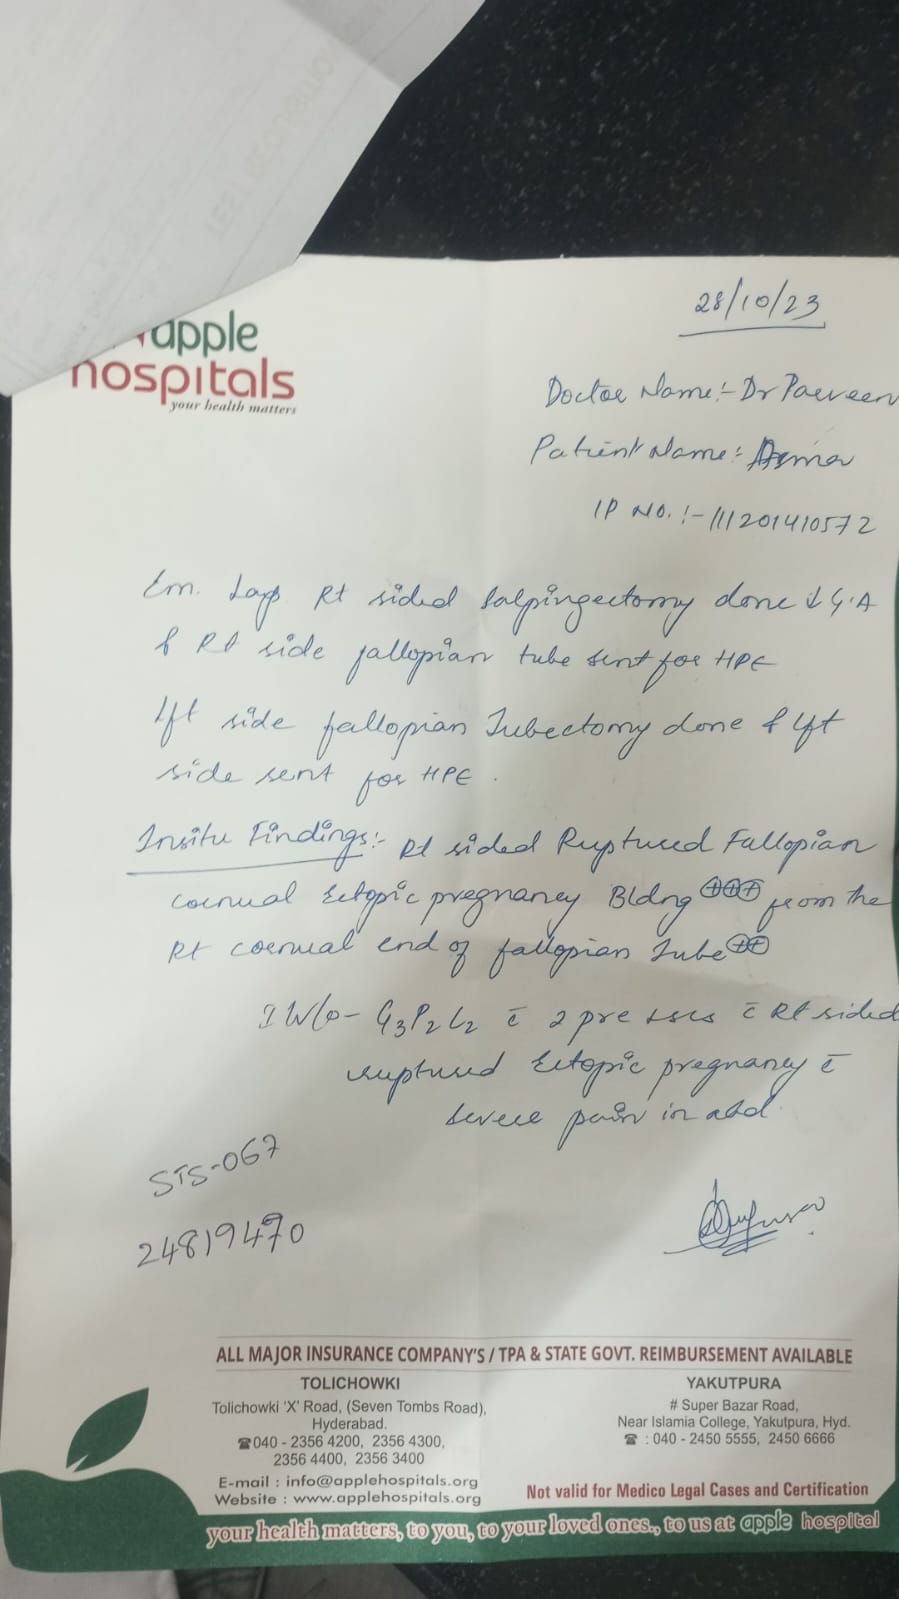 apple
hospitals
your health matters
28/10/23
Doctor Name:- Dr Parveen
Patient Name:-
IP NO.:- 111201410572
Em. Lap Rt sided Salpingectomy done ↓ G.A
& Rt side fallopian tube sent for HPE
Lft side fallopian Tubectomy done & Lft
side sent for HPE.
Insitu Findings:- Rt sided Ruptured Fallopian
cornual Ectopic pregnancy Bldng ⊕⊕⊕ from the
Rt cornual end of fallopian Tube ⊕⊕
G3P2L2 c̄ 2 pre c̄ Rt sided
ruptured Ectopic pregnancy c̄
severe pain in abd.
STS-067
24819470
ALL MAJOR INSURANCE COMPANY'S / TPA & STATE GOVT. REIMBURSEMENT AVAILABLE
TOLICHOWKI
Tolichowki 'X' Road, (Seven Tombs Road),
Hyderabad.
☎040 - 2356 4200, 2356 4300,
2356 4400, 2356 3400
E-mail : info@applehospitals.org
Website : www.applehospitals.org
YAKUTPURA
# Super Bazar Road,
Near Islamia College, Yakutpura, Hyd.
☎ : 040 - 2450 5555, 2450 6666
Not valid for Medico Legal Cases and Certification
your health matters, to you, to your loved ones., to us at apple hospital